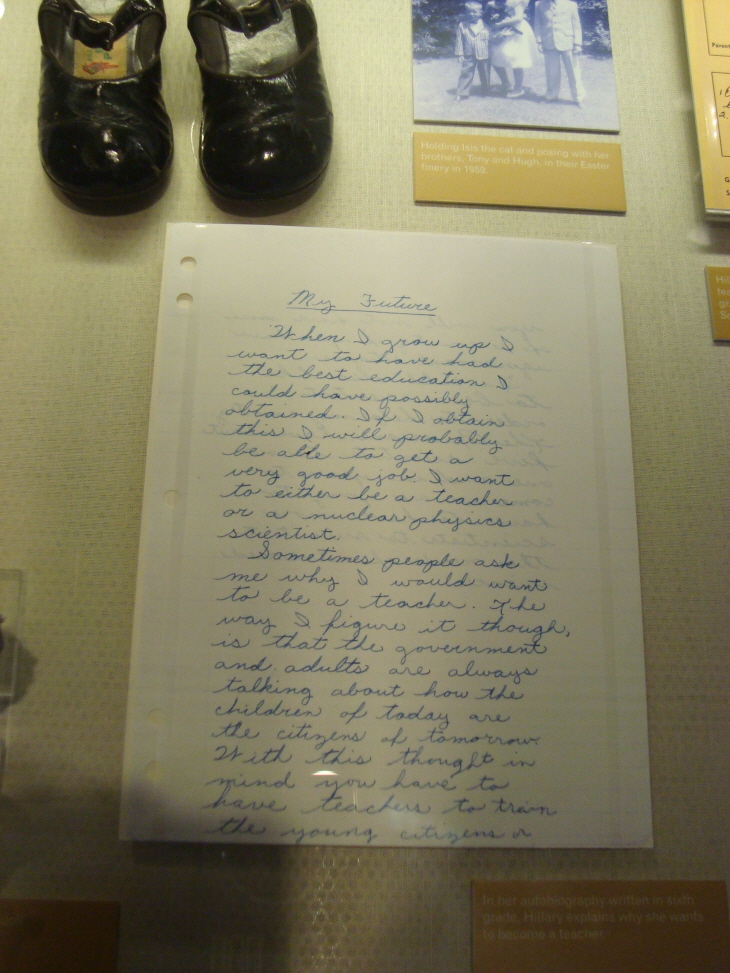 Holding Isis the cat and posing with her
brothers, Tony and Hugh, in their Easter
finery in 1959.
My Future
When I grow up I
want to have had
the best education I
could have possibly
obtained. If I obtain
this I will probably
be able to get a
very good job. I want
to either be a teacher
or a nuclear physics
scientist.
Sometimes people ask
me why I would want
to be a teacher. The
way I figure it though,
is that the government
and adults are always
talking about how the
children of today are
the citizens of tomorrow.
With this thought in
mind you have to
have teachers to train
the young citizens or
In her autobiography written in sixth
grade, Hillary explains why she wants
to become a teacher.